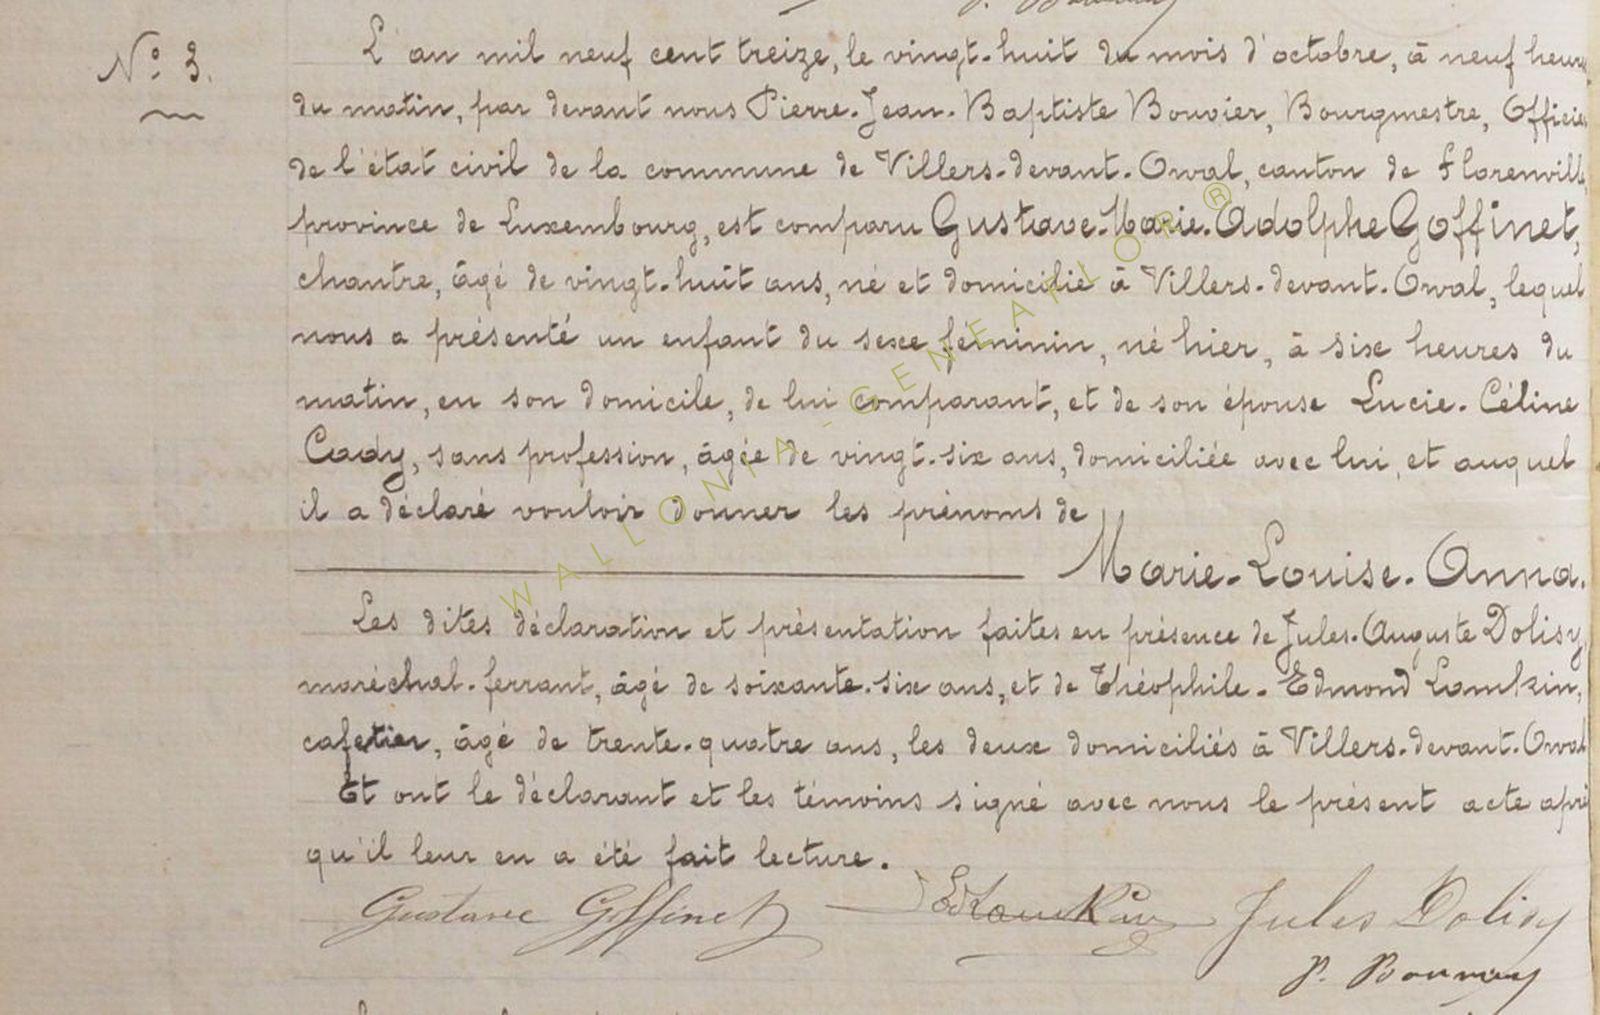 N° 3.
L'an mil neuf cent treize, le vingt-huit du mois d'octobre, à neuf heures
du matin, par devant nous Pierre-Jean-Baptiste Bouvier, Bourgmestre, Officier
de l'état civil de la commune de Villers-devant-Orval, canton de Florenville,
province de Luxembourg, est comparu Gustave-Marie-Adolphe Goffinet,
chantre, âgé de vingt-huit ans, né et domicilié à Villers-devant-Orval, lequel
nous a présenté un enfant du sexe féminin, né hier, à six heures du
matin, en son domicile, de lui comparant, et de son épouse Lucie-Céline
Cady, sans profession, âgée de vingt-six ans, domiciliée avec lui, et auquel
il a déclaré vouloir donner les prénoms de
Marie-Louise-Anna.
Les dites déclaration et présentation faites en présence de Jules-Auguste Dolisy,
maréchal-ferrant, âgé de soixante-six ans, et de Théophile-Edmond Lamkin,
cafetier, âgé de trente-quatre ans, les deux domiciliés à Villers-devant-Orval
Et ont le déclarant et les témoins signé avec nous le présent acte après
qu'il leur en a été fait lecture.
Gustave Goffinet Jules Dolisy
WALLONIA-GENEAFLOR ®